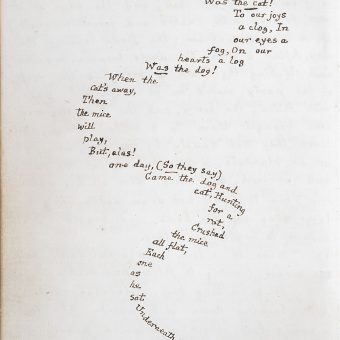 Was the cat!
To our joys
a clog, In
our eyes a
fog, On our
hearts a log
Was the dog!
When the
cat's away,
Then
the mice
will
play,
But, alas!
one day, (So they say)
Came the dog and
cat, Hunting
for a
rat,
Crushed
the mice
all flat,
Each
one
as
he
sat
Underneath